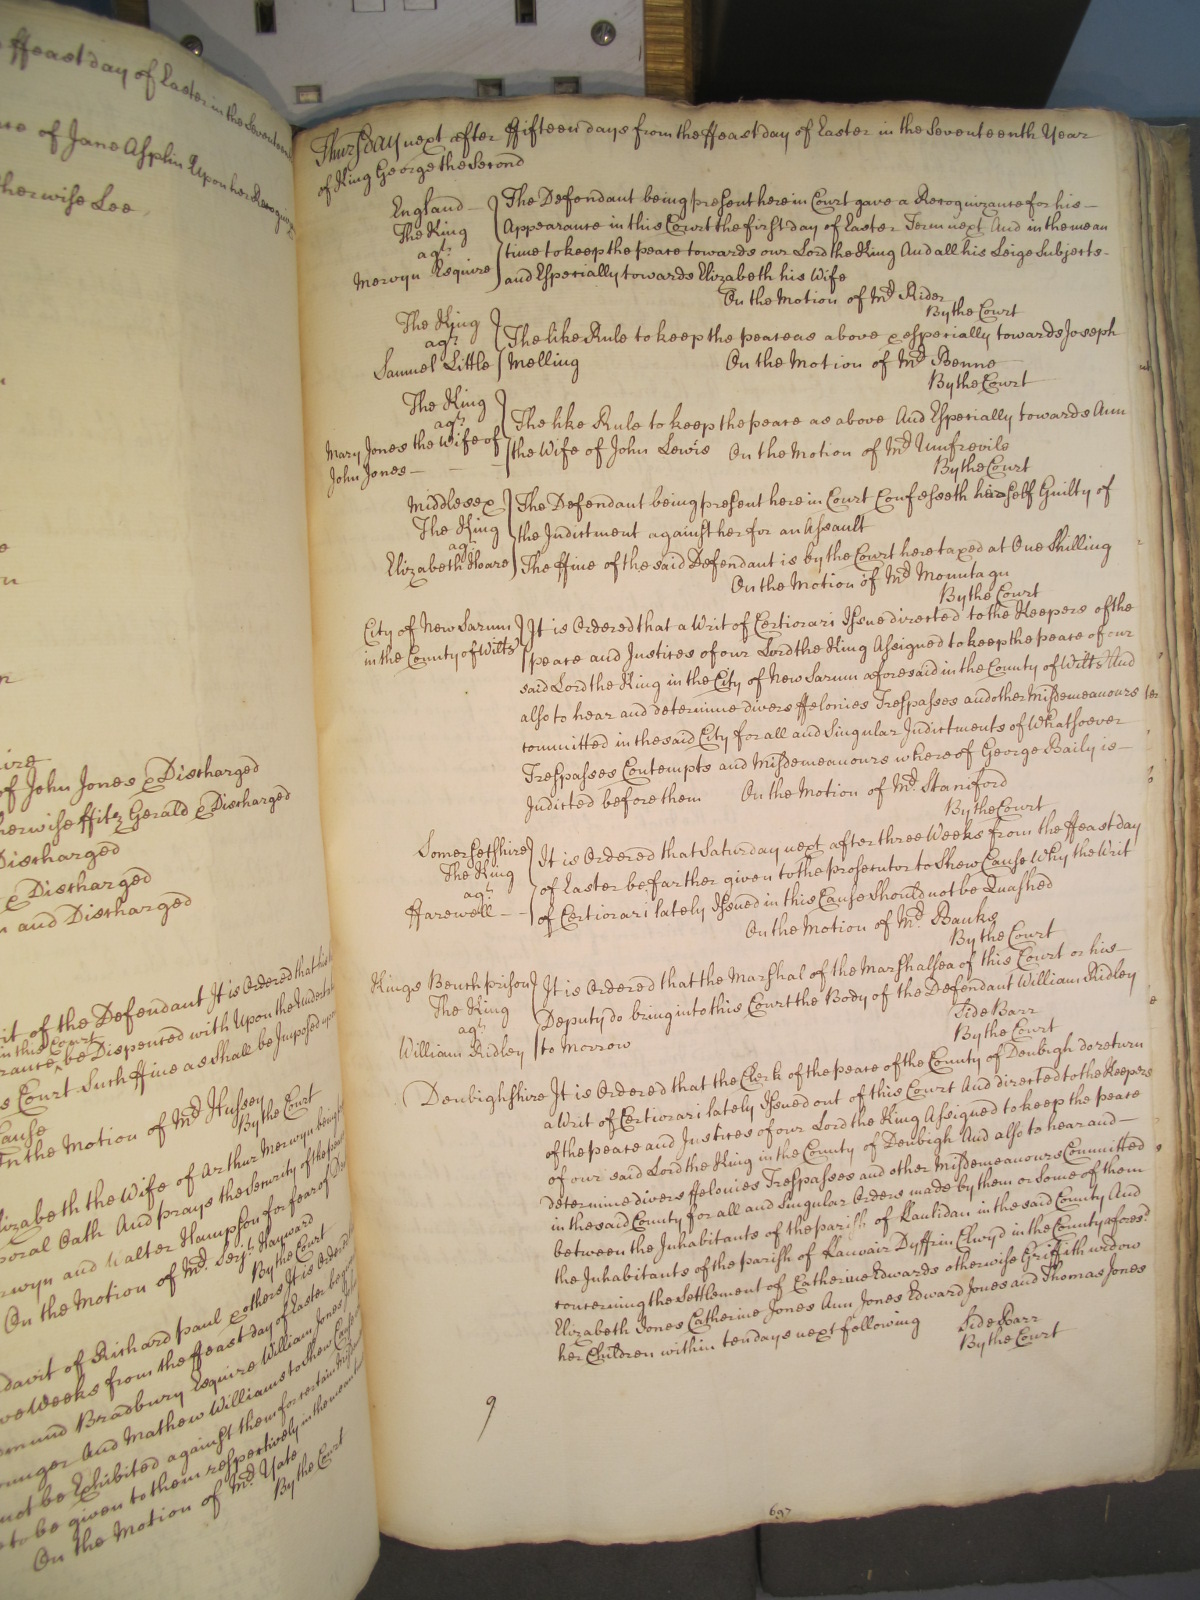 ffeast day of Easter in the Seventeen
ne of Jane Asplin Upon her Recogniz
herwise Lee
ire
of John Jones & Discharged
herwise ffitz Gerald & Discharged
Discharged
& Discharged
n and Discharged
it of the Defendant It is Ordered that his
in this Court
rance be Dispenced with Upon the Undert
s Court Such ffine as shall be Imposed upon
Cause
On the Motion of Mr. Hussey
By the Court
lizabeth the Wife of Arthur Mervyn being
poral Oath And prays the Security of the peace
rwyn and Walter Hampson for fear of
On the Motion of Mr. Serjt. Hayward
By the Court
davit of Richard paul & others It is Ordered
ve Weeks from the ffeast day of Easter be given
mund Bradbury Esquire William Jones
ounger And Mathew Williams to shew Cause
not be Exhibited against them for certain
e to be given to them respectively in the mean
On the Motion of Mr. Yate
By the Court
Thursday next after ffifteen days from the ffeast day of Easter in the Seventeenth Year
of King George the Second
England The Defendant being present here in Court gave a Recognizance for his
The King Appearance in this Court the first day of Easter Term next And in the mean
agt. time to keep the peace towards our Lord the King And all his Leige Subjects
Mervyn Esquire and Especially towards Elizabeth his Wife
On the Motion of Mr. Rider
By the Court
The King
agt. The like Rule to keep the peace as above & especially towards Joseph
Samuel Little Melling On the Motion of Mr. Benne
By the Court
The King
agt. The like Rule to keep the peace as above And Especially towards Ann
Mary Jones the Wife of the Wife of John Lewis On the Motion of Mr. Umfrevile
John Jones By the Court
Middlesex The Defendant being present here in Court Confesseth herself Guilty of
The King the Indictment against her for an Assault
agt.
Elizabeth Hoare The ffine of the said Defendant is by the Court here taxed at One Shilling
On the Motion of Mr. Mountagu
By the Court
City of New Sarum It is Ordered that a Writ of Certiorari Issue directed to the Keepers of the
in the County of Wilts peace and Justices of our Lord the King Assigned to keep the peace of our
said Lord the King in the City of New Sarum aforesaid in the County of Wilts And
also to hear and determine divers ffelonies Trespasses and other Misdemeanours
committed in the said City for all and Singular Indictments of Whatsoever
Trespasses Contempts and Misdemeanours whereof George Baily is
Indicted before them On the Motion of Mr. Staniford
By the Court
Somersetshire It is Ordered that Saturday next after three Weeks from the ffeast day
The King of Easter be farther given to the prosecutor to Shew Cause Why the Writ
agt.
ffarewell of Certiorari lately Issued in this Cause Should not be Quashed
On the Motion of Mr. Banks
By the Court
Kings Bench prison It is Ordered that the Marshal of the Marshalsea of this Court or his
The King Deputy do bring into this Court the Body of the Defendant William Ridley
agt. Side Barr
William Ridley to Morrow By the Court
Denbighshire It is Ordered that the Clerk of the peace of the County of Denbigh do return
a Writ of Certiorari lately Issued out of this Court And directed to the Keepers
of the peace and Justices of our Lord the King Assigned to keep the peace
of our said Lord the King in the County of Denbigh And also to hear and
determine divers ffelonies Trespasses and other Misdemeanours Committed
in the said County for all and Singular Orders made by them or Some of them
between the Inhabitants of the parish of Lanlidan in the said County And
the Inhabitants of the parish of Lanvair Dyffrin Clwyd in the County aforesd.
concerning the Settlement of Catherine Edwards otherwise Griffith widow
Elizabeth Jones Catherine Jones Ann Jones Edward Jones and Thomas Jones
her Children within ten days next following Side Barr
By the Court
9
697